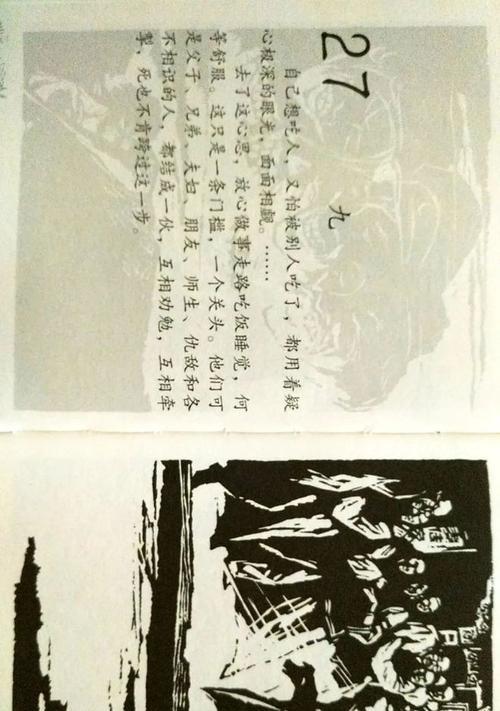 27
九
自己想吃人，又怕被别人吃了，都用着疑
心极深的眼光，面面相觑。……
去了这心思，放心做事走路吃饭睡觉，何
等舒服。这只是一条门槛，一个关头。他们可
是父子、兄弟、夫妇、朋友、师生、仇敌和各
不相识的人，都结成一伙，互相劝勉，互相牵
掣，死也不肯跨过这一步。